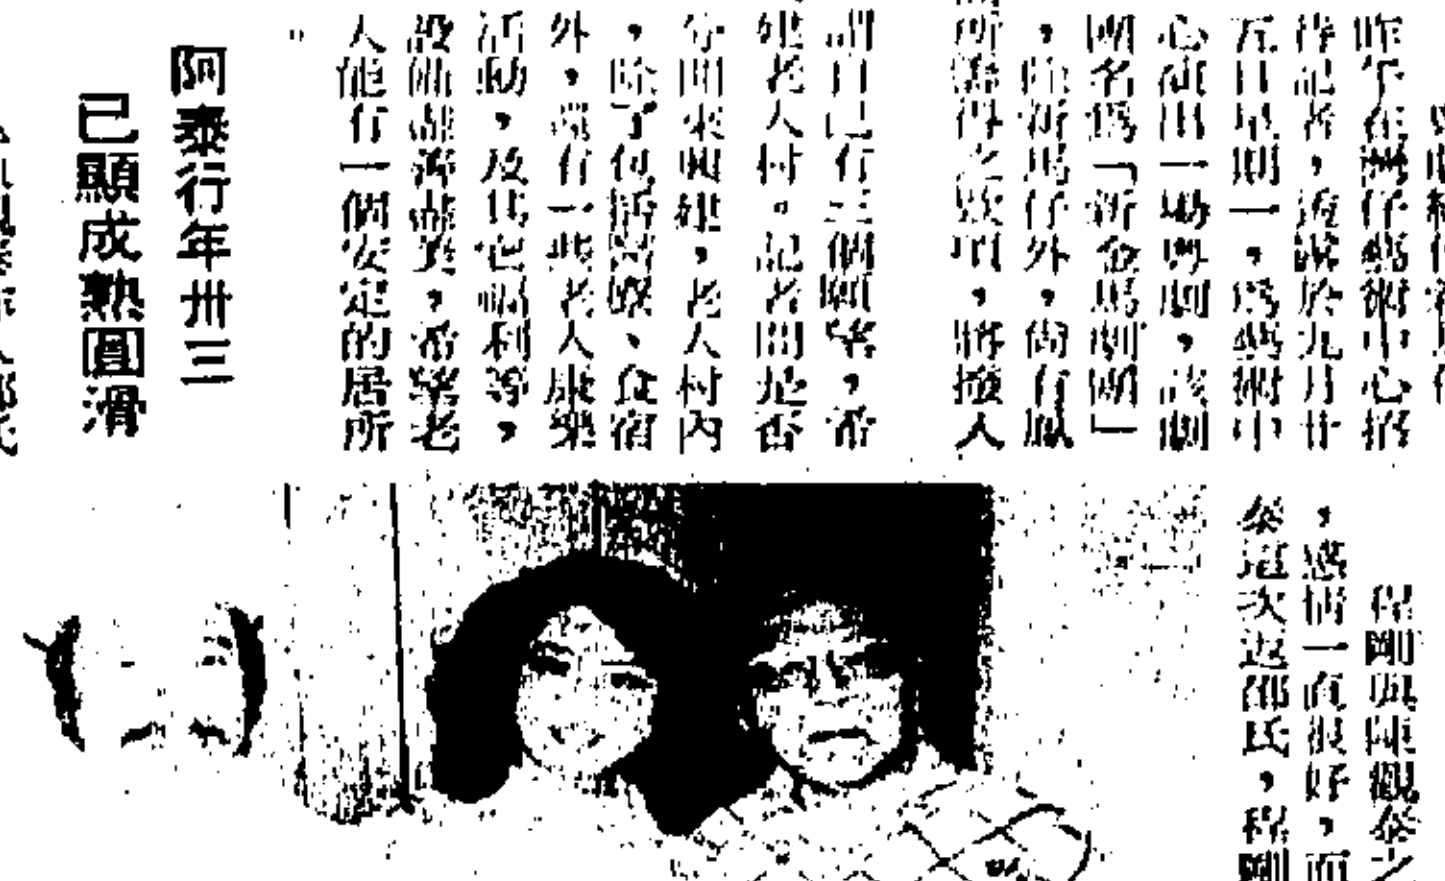 昨午在灣仔藝術中心招
待記者，透露於九月廿
五日星期一，爲藝術中
心演出一場粵劇，該劇
團名爲「新金馬劇團」
，除新馬仔外，尚有鳳
所籌得之款項，將撥入
謂自己有三個願望，希
建老人村。記者問是否
分期來興建，老人村內
，除了包括醫療、食宿
外，還有一些老人康樂
活動，及其它福利等，
設備盡善盡美，希望老
人能有一個安定的居所
阿泰行年卅三
已顯成熟圓滑
程剛與陳觀泰之
，感情一直很好，而
泰這次返邵氏，程剛